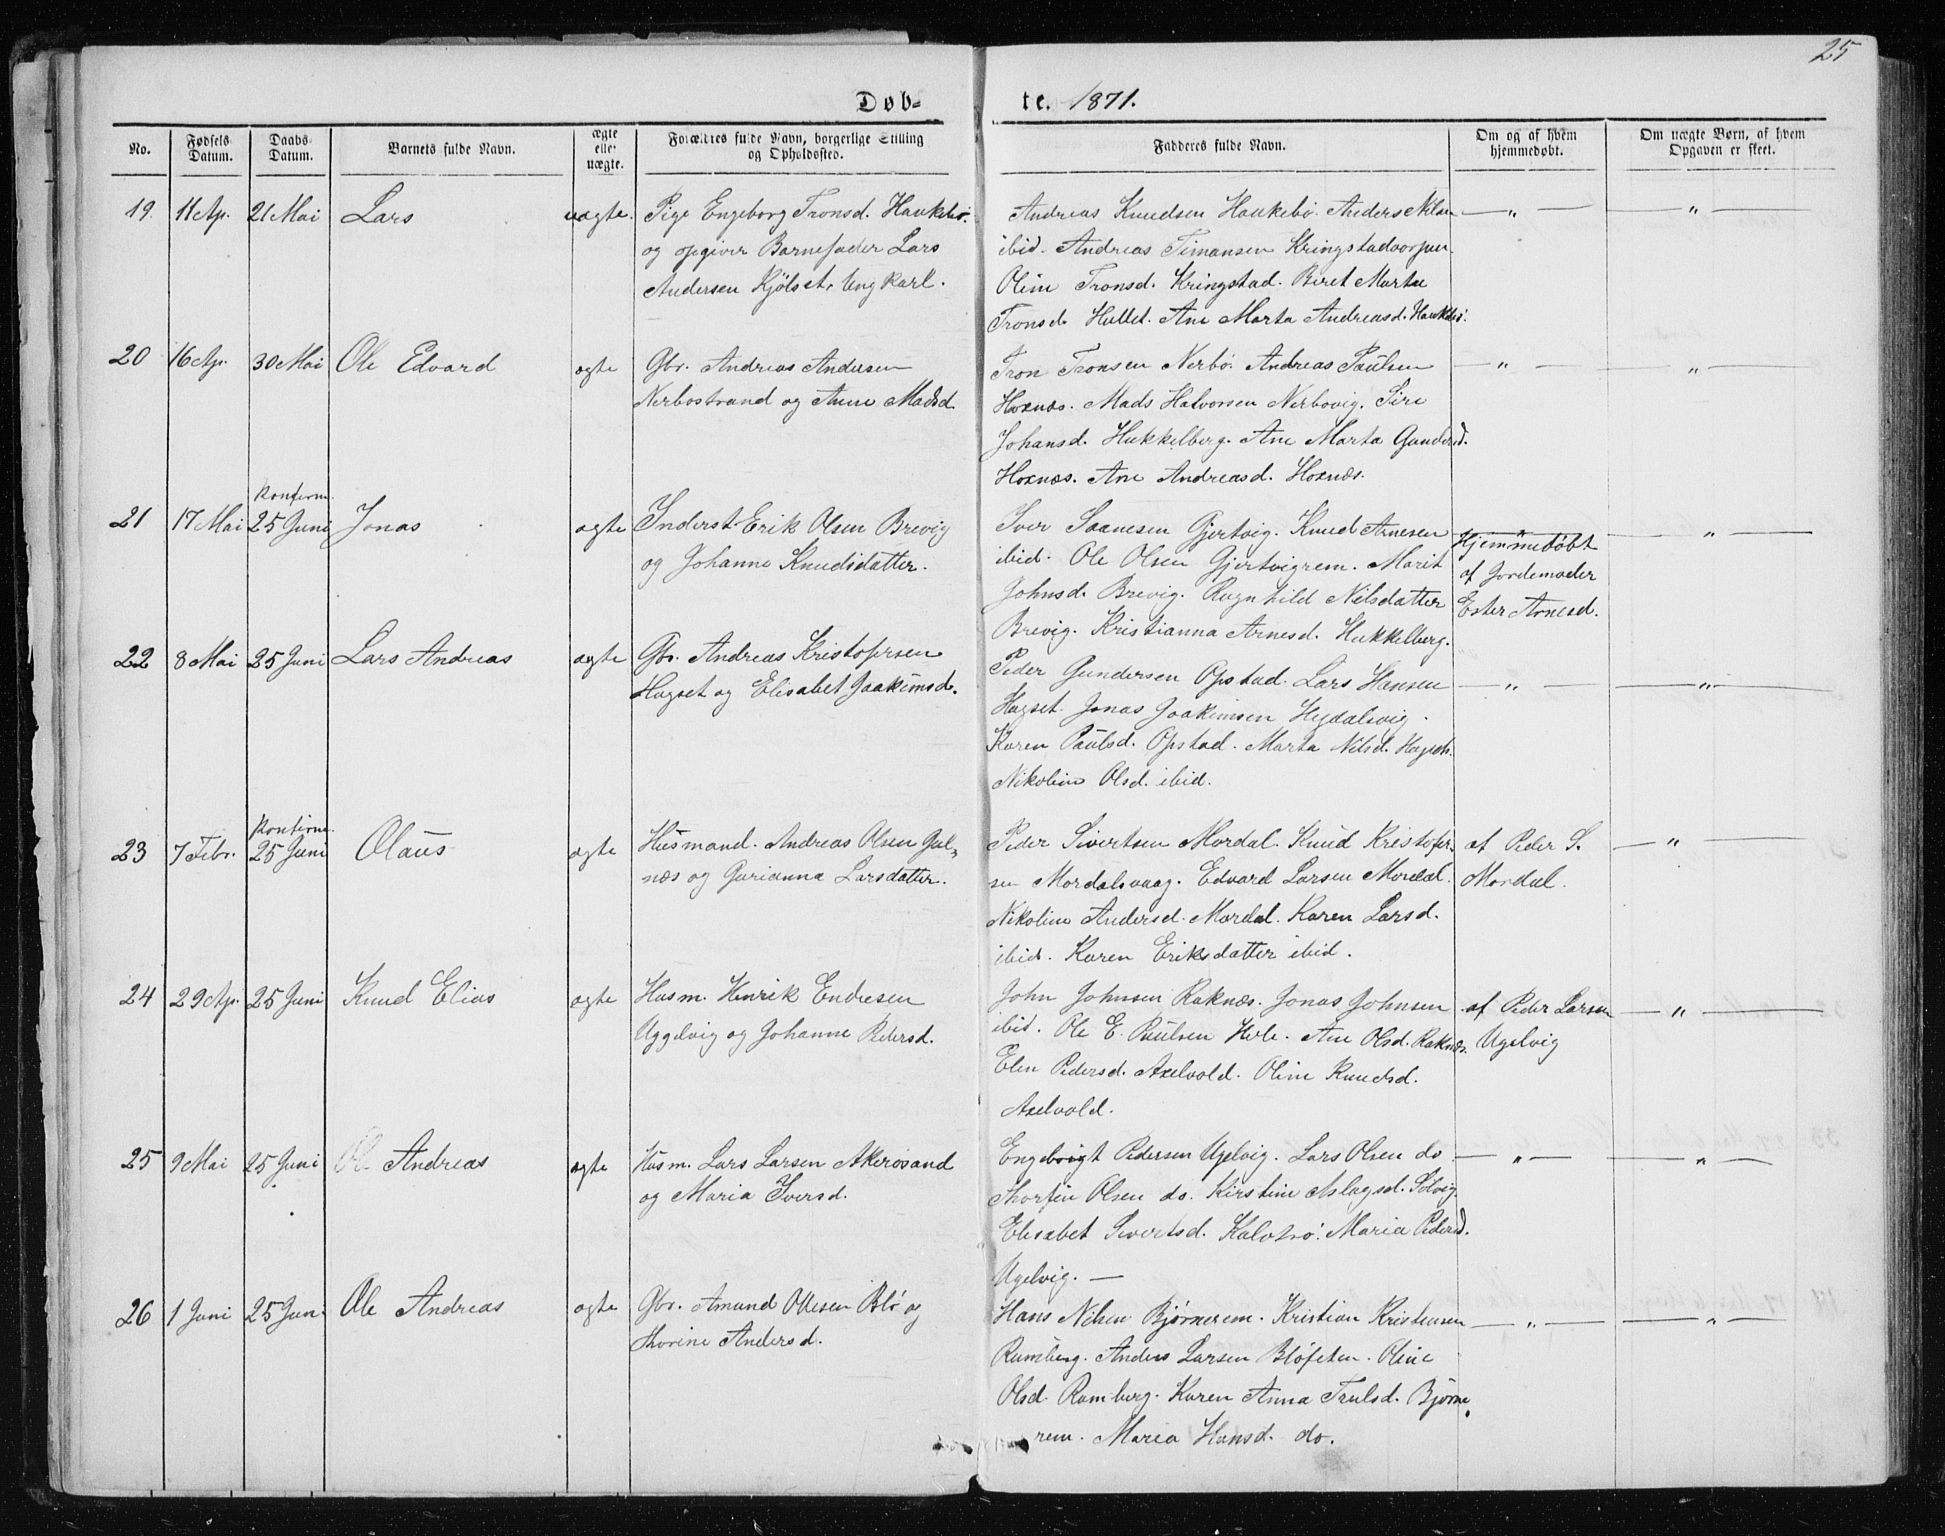 25
Døb-
te. 1871.
No.
Fødsels Datum.
Daabs Datum.
Barnets fulde Navn.
ægte eller uægte.
Forældres fulde Navn, borgerlige Stilling og Opholdssted.
Fadderes fulde Navn.
Om og af hvem hjemmedøbt.
Om uægte Børn, af hvem Opgaven er skeet.
19. 11 Ap. 21 Mai Lars uægte. Pige Engeborg Tronsd. Haukebø.
og opgiver Barnefader Lars
Andersen Kjölset, Ungkarl.
Andreas Knudsen Haukebø. Anders Nilsen — „ — — „ —
ibid. Andreas Timansen Kringstadvorpen
Oline Tronsd. Kringstad. Beret Marta
Tronsd. Hullet. Ane Marta Andreasd. Haukebø.
20 16 Ap. 30 Mai Ole Edvard ægte Gbr. Andreas Andersen
Nerbøstrand og Anne Madsd.
Tron Tronsen Nerbø. Andreas Paulsen — „ — — „ —
Hoxnæs. Mads Halvorsen Nerbøvig. Siri
Johansd. Hukkelberg. Ane Marta Gundersd.
Hoxnæs. Ane Andreasd. Hoxnæs.
21 17 Mai Konfirm. 25 Juni Jonas ægte Inderst Erik Olsen Brevig
og Johanne Knudsdatter.
Iver Saanesen Gjertvig. Knud Arnesen — „ —
ibid. Ole Olsen Gjertvigrem. Marit
Johnsd. Brevig. Ragnhild Nilsdatter
Brevig. Kristianna Arnesd. Hukkelberg.
Hjemmedøbt
af Jordemoder
Ester Arnesd.
22 8 Mai 25 Juni Lars Andreas ægte Gbr. Andreas Kristofersen
Hagset og Elisabet Joakimsd.
Peder Gundersen Opstad. Lars Hansen — „ — — „ —
Hagset. Jonas Joakimsen Hegdalsvig.
Karen Paulsd. Opstad. Marta Nilsd. Hagset.
Nikoline Olsd. ibid.
23 7 Febr. Konfirm. 25 Juni Olaus ægte Husmand. Andreas Olsen Gul-
næs og Gurianna Larsdatter.
Peder Sivertsen Mordal. Knud Kristofer-
sen Mordalsvaag. Edvard Larsen Mordal.
Nikoline Andersd. Mordal. Karen Larsd.
ibid. Karen Eriksdatter ibid.
af Peder S. — „ —
Mordal.
24 29 Ap. 25 Juni Knud Elias ægte Husm. Henrik Endresen
Uggelvig og Johanne Pedersd.
John Johnsen Raknæs. Jonas Johnsen
ibid. Ole E. Paulsen Hole. Ane Olsd. Raknæs.
Elen Pedersd. Axelvold. Oline Knudsd.
Axelvold.
af Peder Larsen — „ —
Ugelvig
25 9 Mai 25 Juni Ole Andreas ægte Husm. Lars Larsen Akerøsand
og Maria Iversd.
Engebrigt Pedersen Ugelvig. Lars Olsen do — „ — — „ —
Thorfin Olsen do. Kirstine Aslagsd. Solvig.
Elisabet Sivertsd. Kalvhø. Maria Pedersd.
Ugelvig. —
26 1 Juni 25 Juni Ole Andreas ægte Gbr. Amund Ottesen Blø og
Thorine Andersd.
Hans Nilsen Bjørnerem. Kristian Kristensen — „ — — „ —
Ramberg. Anders Larsen Bløfeten. Oline
Olsd. Ramberg. Karen Anna Trulsd. Bjørne-
rem. Maria Hansd. do.